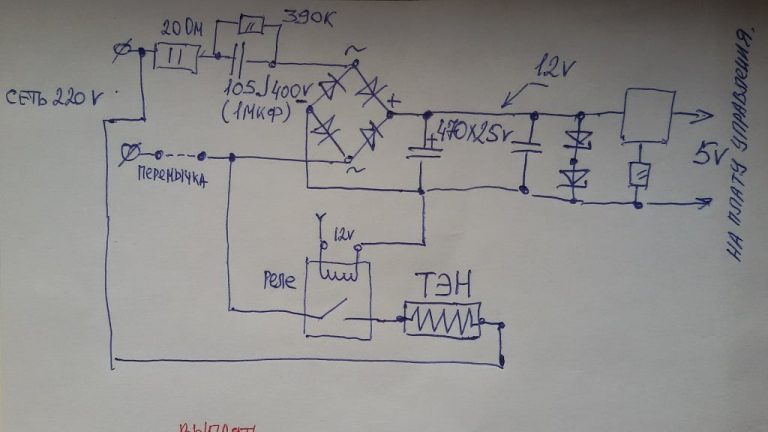 390К
20 Ом
~
12v
СЕТЬ 220v
105J400v
(1МКФ)
-
+
470x25v
5v
НА ПЛАТУ УПРАВЛЕНИЯ.
ПЕРЕМЫЧКА
~
12v
Реле
ТЭН